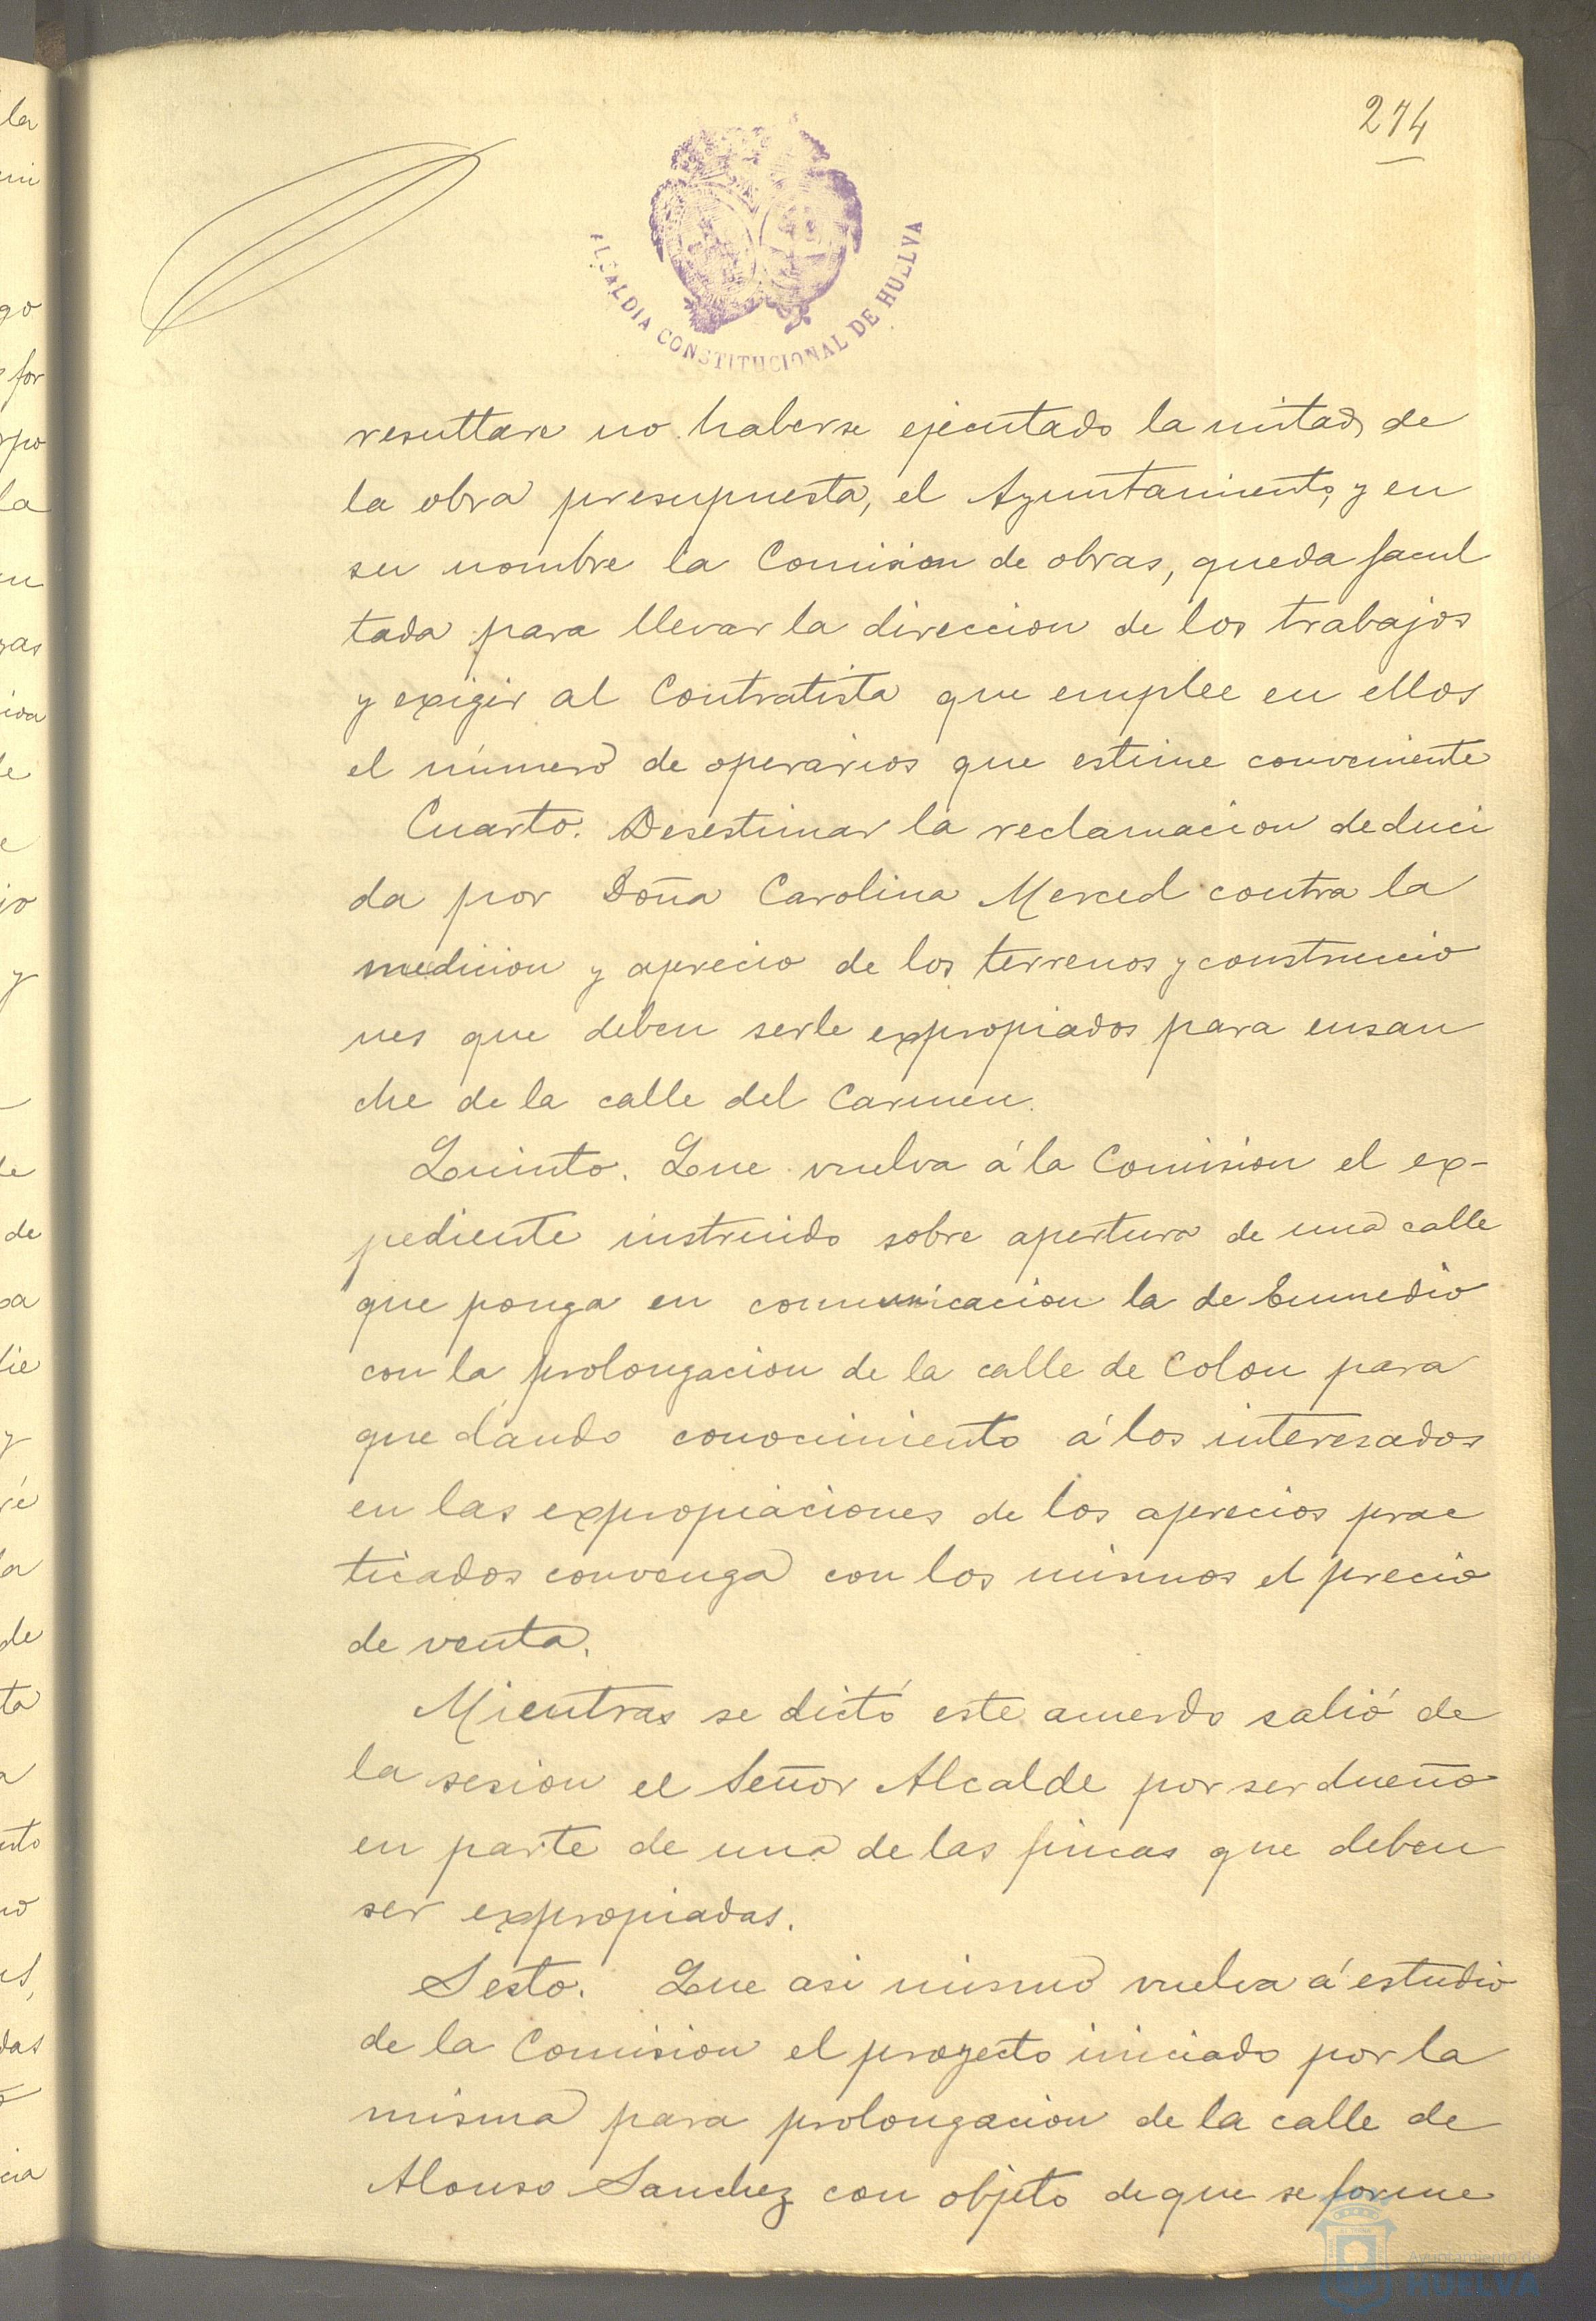 274
ALCALDIA CONSTITUCIONAL DE HUELVA
resultare no haberse ejecutado la mitad de
la obra presupuesta, el Ayuntamiento, y en
su nombre la Comision de obras, queda facul
tada para llevar la direccion de los trabajos
y exigir al Contratista que emplee en ellos
el número de operarios que estime conveniente
Cuarto. Desestimar la reclamacion deduci
da por Doña Carolina Merced contra la
medicion y aprecio de los terrenos y construccio
nes que deben serle expropiados para ensan
che de la calle del Carmen.
Quinto. Que vuelva á la Comision el ex-
pediente instruido sobre apertura de una calle
que ponga en comunicacion la de Enmedio
con la prolongacion de la calle de Colon para
que dando conocimiento á los interesados
en las expropiaciones de los aprecios prac
ticados convenga con los mismos el precio
de venta.
Mientras se dictó este acuerdo salió de
la sesion el Señor Alcalde por ser dueño
en parte de una de las fincas que deben
ser expropiadas.
Sesto. Que asi mismo vuelva á estudio
de la Comision el proyecto iniciado por la
misma para prolongacion de la calle de
Alonso Sanchez con objeto de que se forme
HUELVA